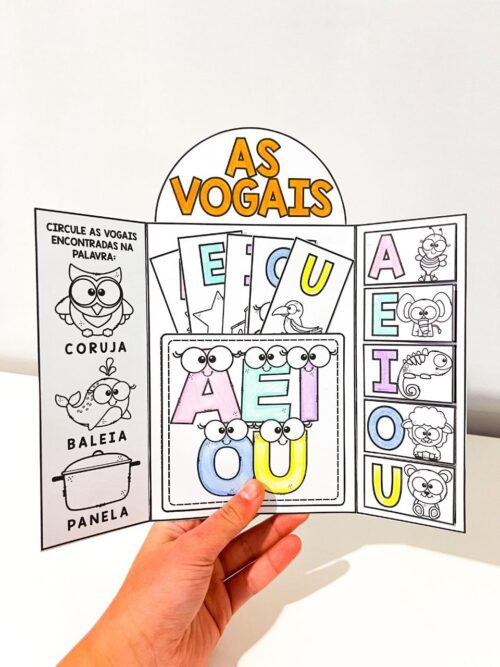 AS
VOGAIS
CIRCULE AS VOGAIS
ENCONTRADAS NA
PALAVRA:
CORUJA
BALEIA
PANELA
E
I
O
U
AEI
OU
A
E
I
O
U